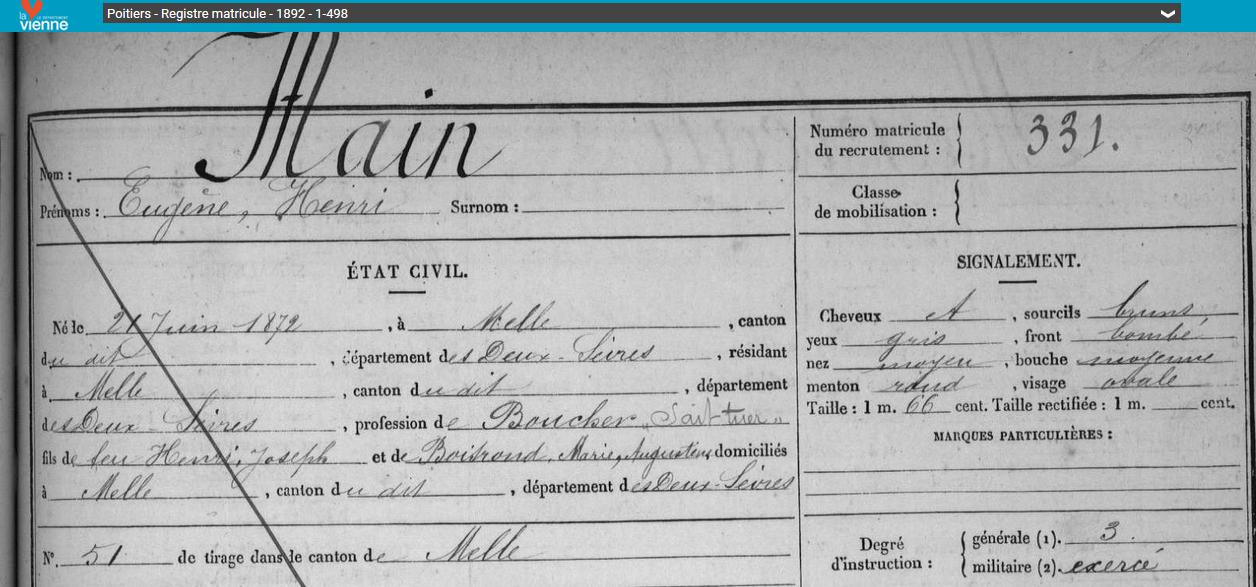 la vienne
LE DÉPARTEMENT
Poitiers - Registre matricule - 1892 - 1-498
Nom : Main
Prénoms : Eugène, Henri Surnom :
Numéro matricule du recrutement : 331.
Classe de mobilisation :
ÉTAT CIVIL.
Né le 21 Juin 1872, à Melle, canton
du dit, département des Deux-Sèvres, résidant
à Melle, canton du dit, département
des Deux Sèvres, profession de Boucher „Sait tuer„
fils de feu Henri, Joseph et de Boitrond, Marie, Augustine domiciliés
à Melle, canton du dit, département des Deux-Sèvres
N°. 51 de tirage dans le canton de Melle
SIGNALEMENT.
Cheveux et, sourcils bruns,
yeux gris, front bombé
nez moyen, bouche moyenne
menton rond, visage ovale
Taille : 1 m. 66 cent. Taille rectifiée : 1 m. cent.
MARQUES PARTICULIÈRES :
Degré d'instruction : générale (1). 3.
militaire (2). exercé